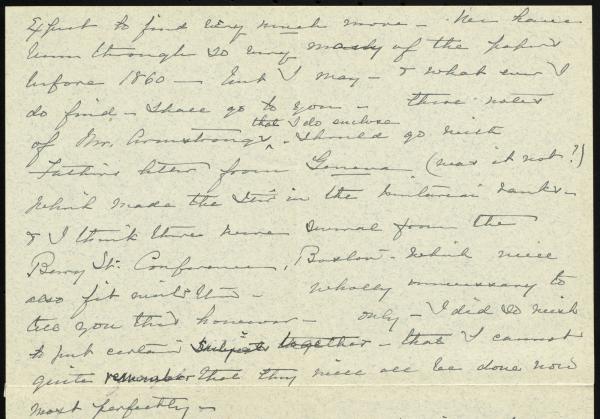 expect to find very much more - We have
been through so very many of the papers
before 1860 - but I may - & what ever I
do find - shall go to you - these notes
of Mr. Armstrong's that I do enclose - should go with
Father's letter from Geneva (was it not?)
which made the stir in the Unitarian ranks -
& I think there were several from the
Berry St. Conference, Boston - which will
also fit with this - wholly unnecessary to
tell you this however - only - I did so wish
to put certain subjects together - that I cannot
quite remember that they will all be done now
most perfectly -